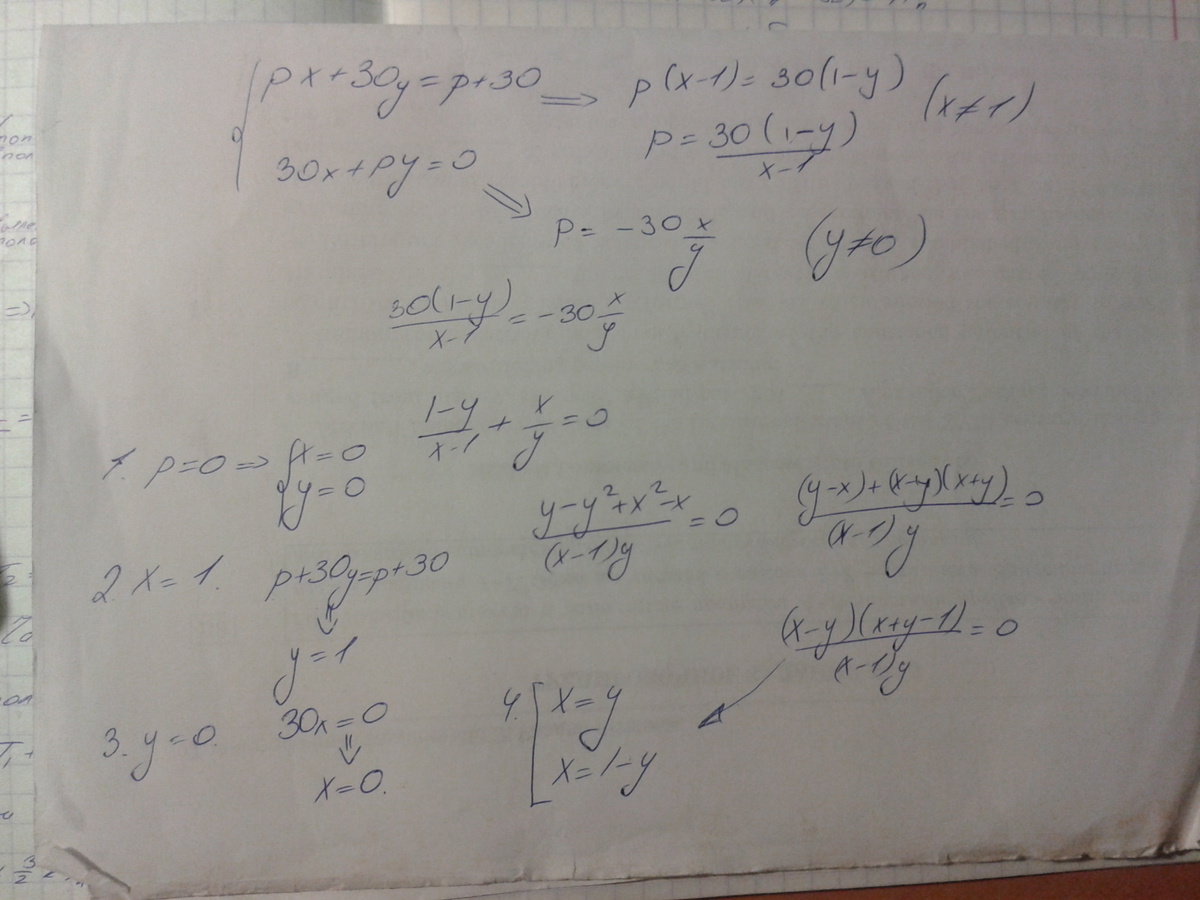 px+30y=p+30 ⇒ p(x-1)=30(1-y) (x≠1)
p=30(1-y)/x-1
30x+py=0
⇒ p=-30 x/y (y≠0)
30(1-y)/x-1 = -30 x/y
1-y/x-1 + x/y = 0
1. p=0 ⇒ {x=0
y=0
y-y²+x²-x/(x-1)y = 0
(y-x)+(x-y)(x+y)/(x-1)y = 0
2. x=1. p+30y=p+30
⇓
y=1
(x-y)(x+y-1)/(x-1)y = 0
3. y=0. 30x=0
⇓
x=0.
4. [x=y
x=1-y